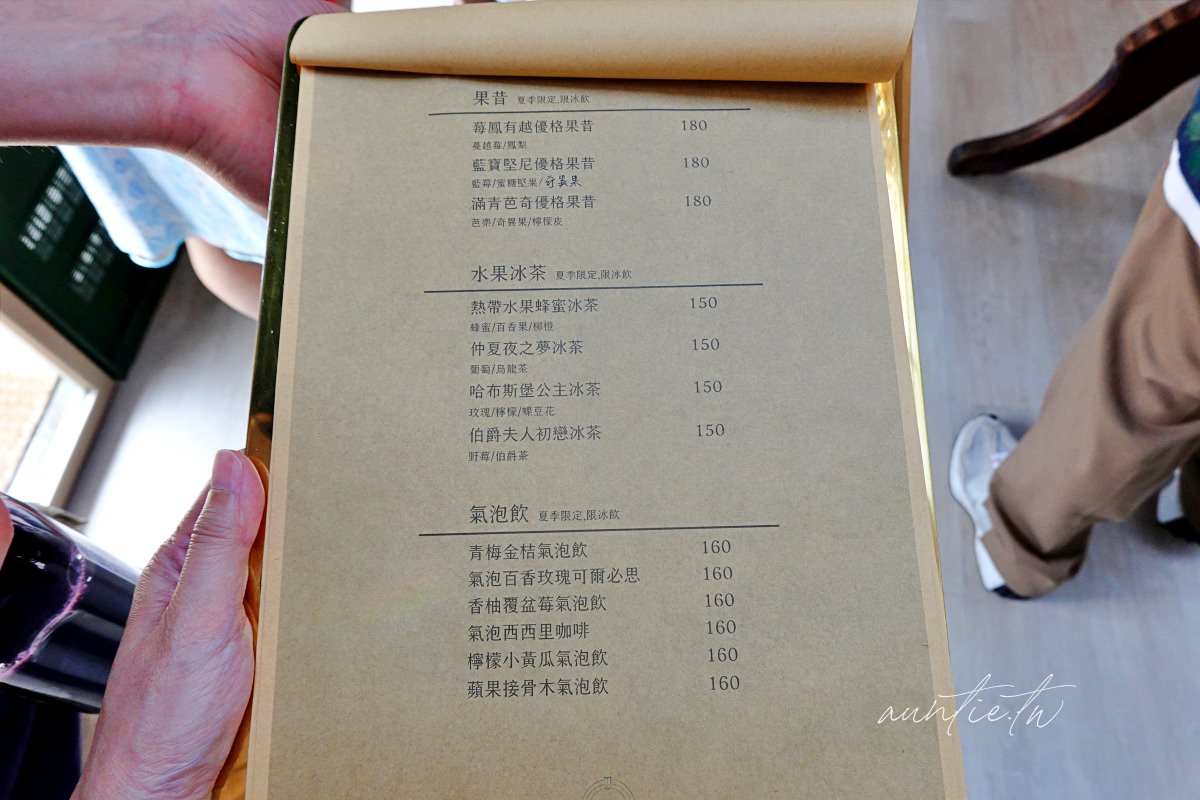 果昔 夏季限定,限冰飲
莓鳳有越優格果昔 180
蔓越莓/鳳梨
藍寶堅尼優格果昔 180
藍莓/蜜糖堅果/奇異果
滿青芭奇優格果昔 180
芭樂/奇異果/檸檬皮
水果冰茶 夏季限定,限冰飲
熱帶水果蜂蜜冰茶 150
蜂蜜/百香果/柳橙
仲夏夜之夢冰茶 150
葡萄/烏龍茶
哈布斯堡公主冰茶 150
玫瑰/檸檬/蝶豆花
伯爵夫人初戀冰茶 150
野莓/伯爵茶
氣泡飲 夏季限定,限冰飲
青梅金桔氣泡飲 160
氣泡百香玫瑰可爾必思 160
香柚覆盆莓氣泡飲 160
氣泡西西里咖啡 160
檸檬小黃瓜氣泡飲 160
蘋果接骨木氣泡飲 160
auntie.tw